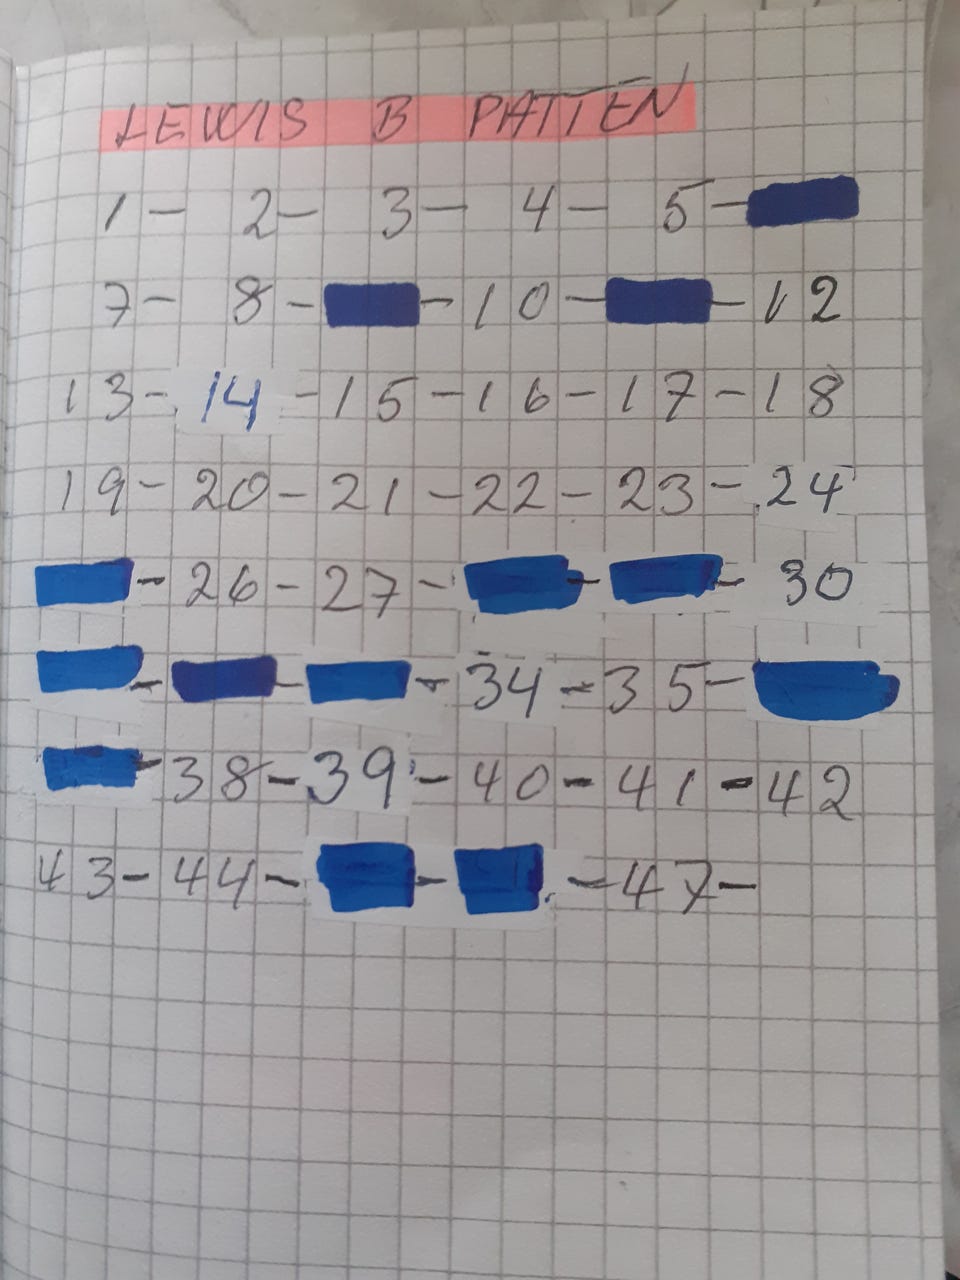 LEWIS B PATTEN
1 - 2 - 3 - 4 - 5 -
7 - 8 - - 10 - - 12
13 - 14 - 15 - 16 - 17 - 18
19 - 20 - 21 - 22 - 23 - 24
- 26 - 27 - - - 30
- - - 34 - 35 -
- 38 - 39 - 40 - 41 - 42
43 - 44 - - - 47 -